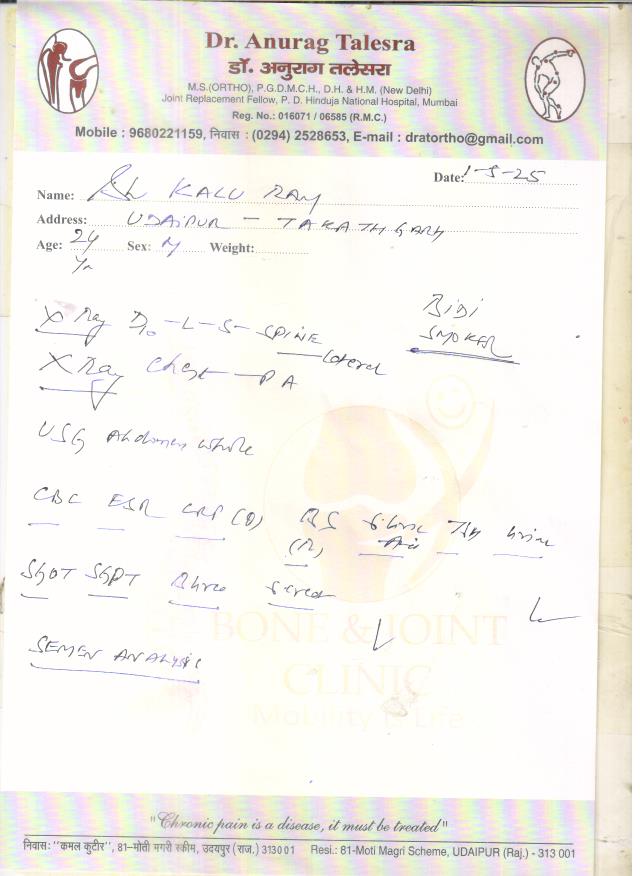 Dr. Anurag Talesra
डॉ. अनुराग तलेसरा
M.S.(ORTHO), P.G.D.M.C.H., D.H. & H.M. (New Delhi)
Joint Replacement Fellow, P. D. Hinduja National Hospital, Mumbai
Reg. No.: 016071 / 06585 (R.M.C.)
Mobile : 9680221159, निवास : (0294) 2528653, E-mail : dratortho@gmail.com
Date: 1-5-25
Name: Sh KALU RAM
Address: UDAIPUR - TAKATHGARH
Age: 24 Yr Sex: M Weight:
BIDI
SMOKER
X Ray D10-L-S-SPINE
lateral
X Ray Chest - PA
USG Abdomen whole
CBC ESR CRP (Q) BS (R) S. Uric Acid TSH Urine
SGOT SGPT B. Urea S. Creat
SEMEN ANALYSIS
BONE & JOINT
CLINIC
Mobility is Life
"Chronic pain is a disease, it must be treated"
निवास: "कमल कुटीर", 81-मोती मगरी स्कीम, उदयपुर (राज.) 313001 Resi.: 81-Moti Magri Scheme, UDAIPUR (Raj.) - 313 001